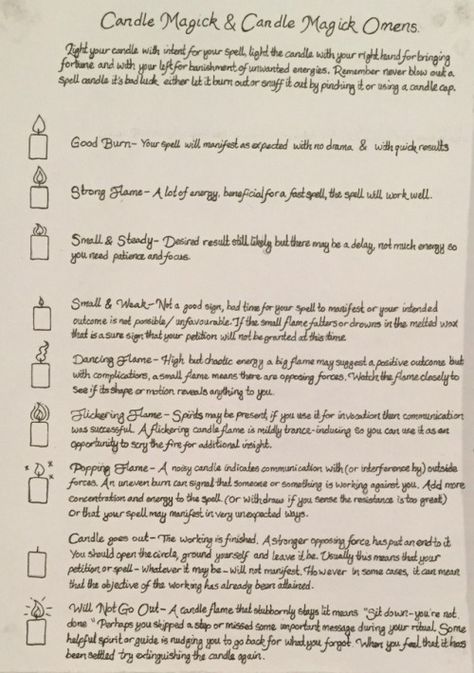 Candle Magick & Candle Magick Omens.
Light your candle with intent for your spell, light the candle with your right hand for bringing
fortune and with your left for banishment of unwanted energies. Remember never blow out a
spell candle it's bad luck either let it burn out or snuff it out by pinching it or using a candle cap.
Good Burn- Your spell will manifest as expected with no drama & with quick results
Strong Flame- A lot of energy, beneficial for a fast spell, the spell will work well.
Small & Steady- Desired result still likely but there may be a delay, not much energy so
you need patience and focus.
Small & Weak- Not a good sign, bad time for your spell to manifest or your intended
outcome is not possible/ unfavourable. If the small flame falters or drowns in the melted wax
that is a sure sign that your petition will not be granted at this time.
Dancing Flame- High but chaotic energy a big flame may suggest a positive outcome but
with complications, a small flame means there are opposing forces. Watch the flame closely to
see if its shape or motion reveals anything to you.
Flickering Flame- Spirits may be present, if you use it for invocation then communication
was successful. A flickering candle flame is mildly trance-inducing so you can use it as an
opportunity to scry the fire for additional insight.
Popping Flame- A noisy candle indicates communication with (or interference by) outside
forces. An uneven burn can signal that someone or something is working against you. Add more
concentration and energy to the spell. (Or withdraw if you sense the resistance is too great)
Or that your spell may manifest in very unexpected ways.
Candle goes out- The working is finished. A stronger opposing force has put an end to it.
You should open the circle, ground yourself and leave it be. Usually this means that your
petition or spell - whatever it may be - will not manifest. However in some cases, it can mean
that the objective of the working has already been attained.
Will Not Go Out- A candle flame that stubbornly stays lit means "Sit down- you're not
done" Perhaps you skipped a step or missed some important message during your ritual. Some
helpful spirit or guide is nudging you to go back for what you forgot. When you feel that it has
been settled try extinguishing the candle again.